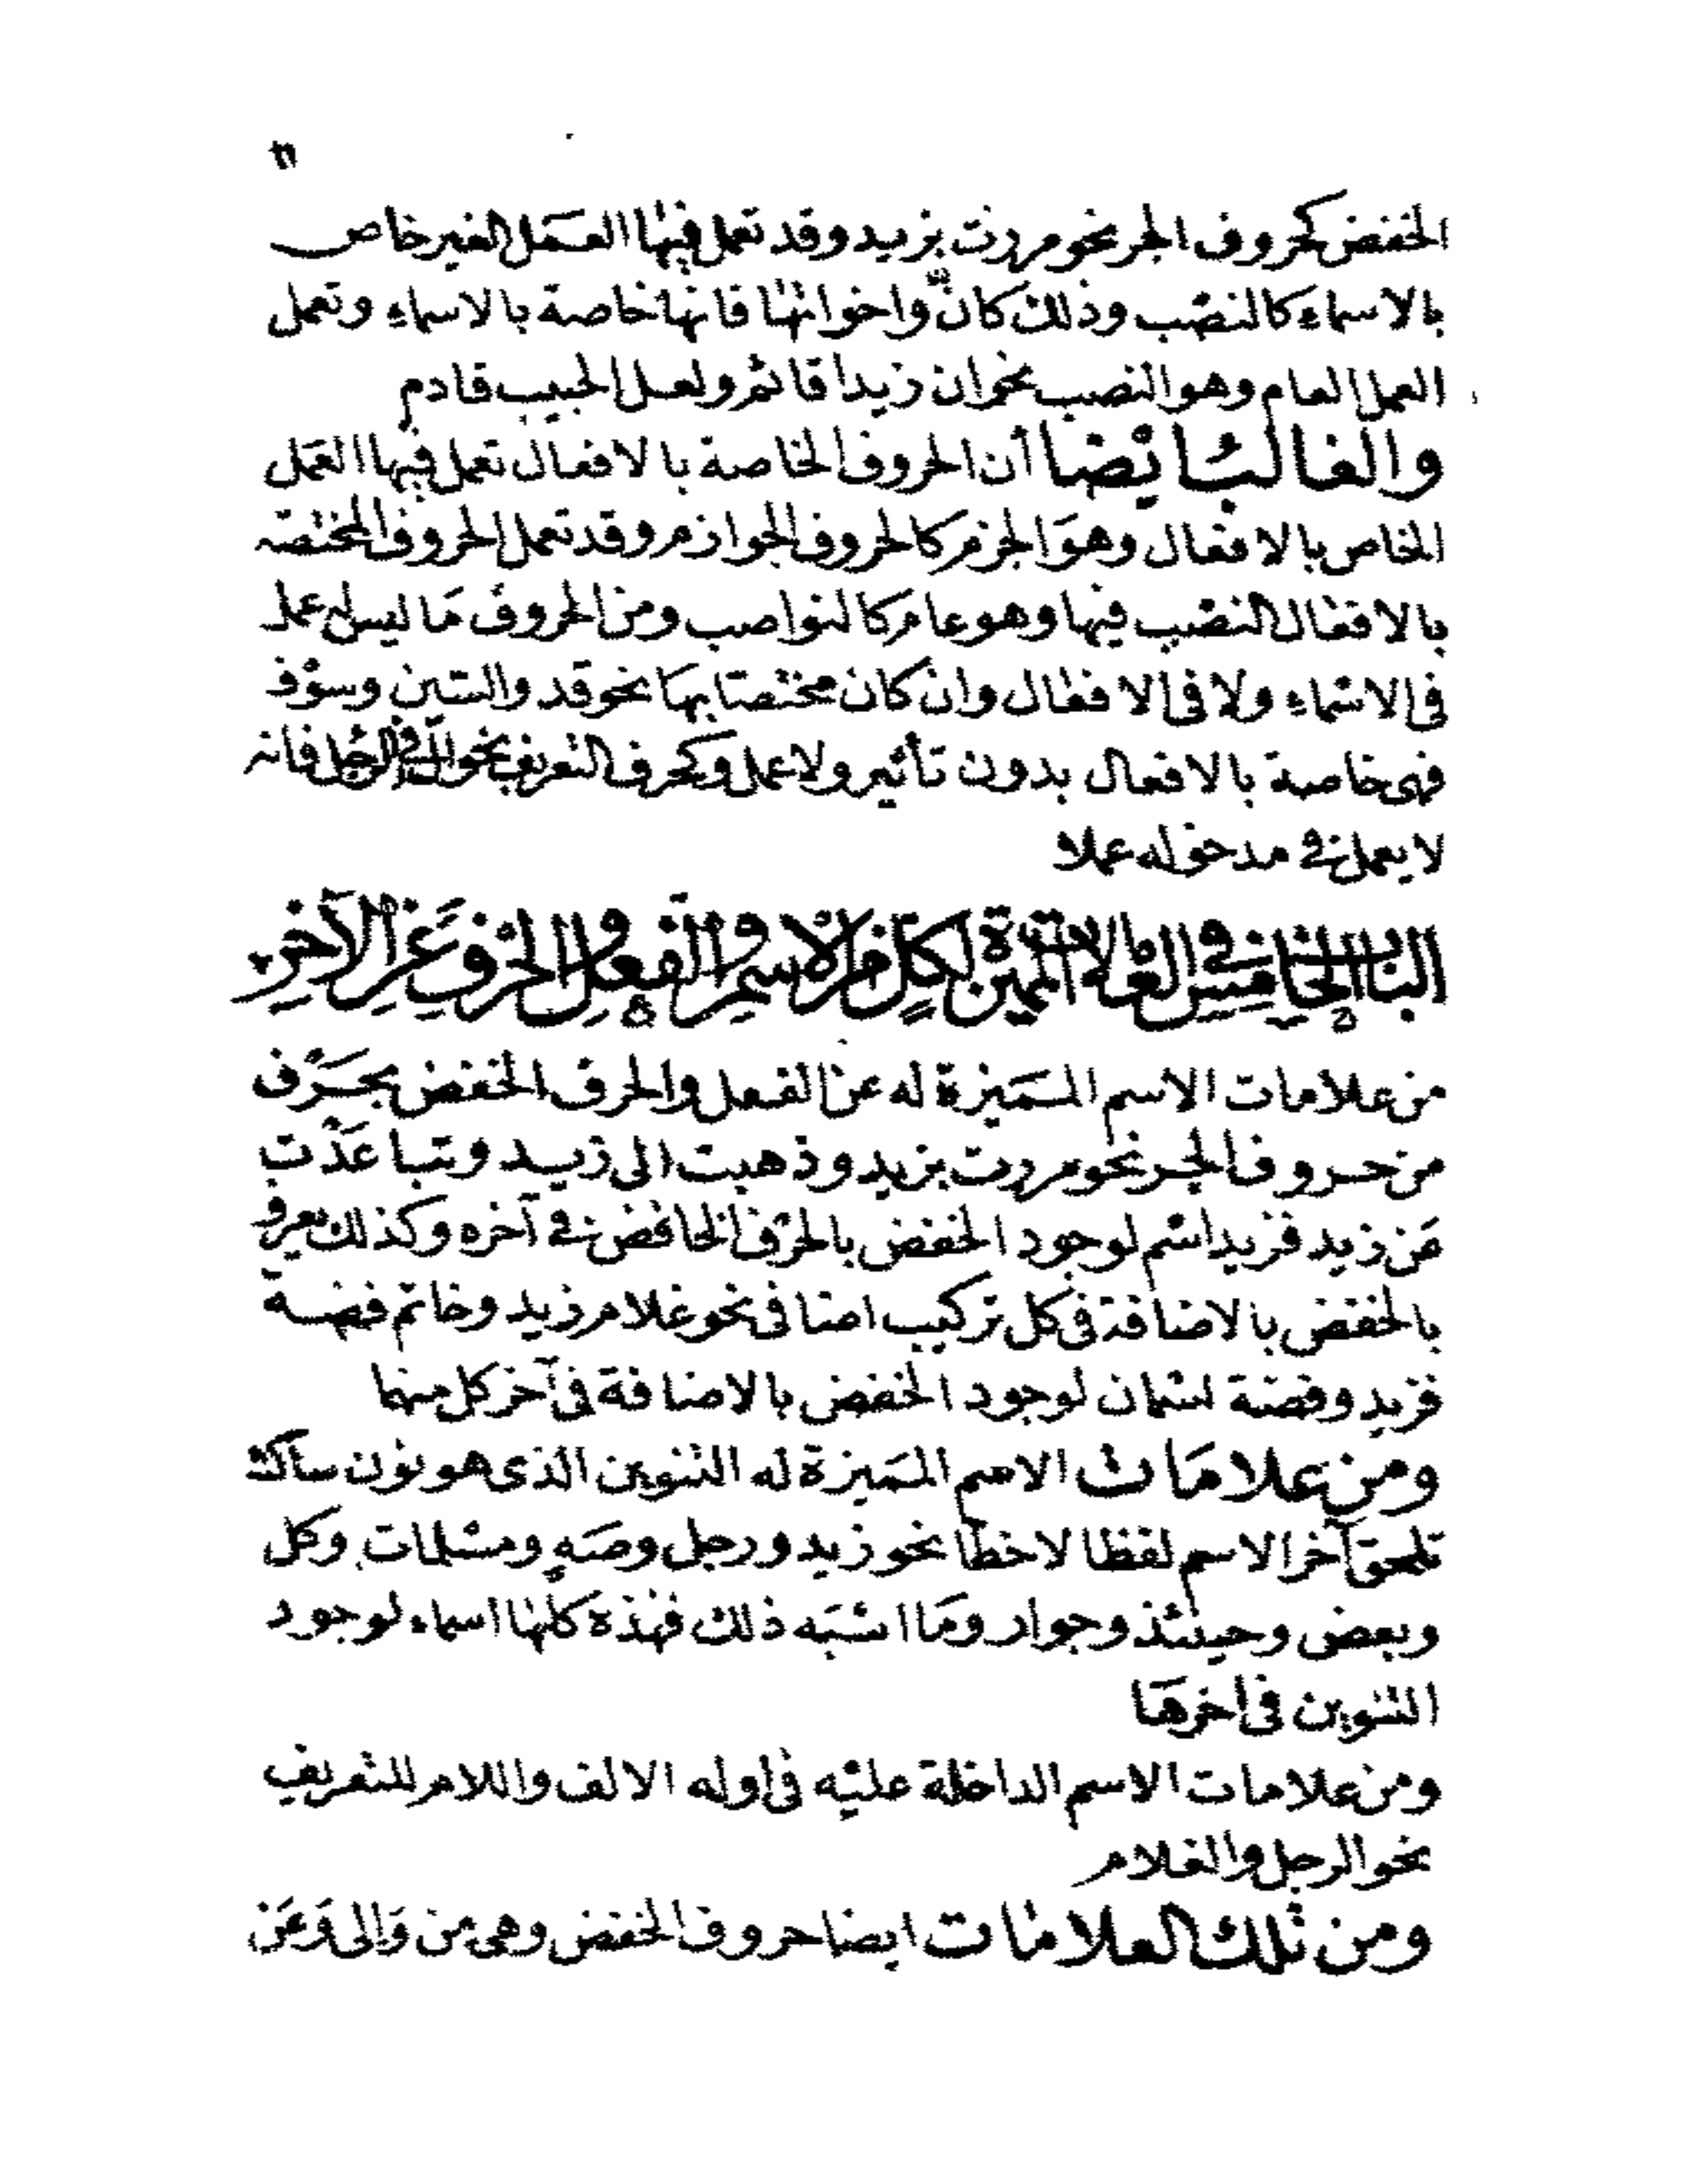 الخفض كحروف الجر نحو مررت بزيد وقد تعمل فيها العمل الغير خاص
بالاسماء كالنصب وذلك كان واخواتها فانها خاصة بالاسماء وتعمل
العمل العام وهو النصب نحو ان زيدا قائم ولعل الحبيب قادم
والغالب ايضا أن الحروف الخاصة بالافعال تعمل فيها العمل
الخاص بالافعال وهو الجزم كالحروف الجوازم وقد تعمل الحروف المختصة
بالافعال النصب فيها وهو عام كالنواصب ومن الحروف ما ليس له عمل
فى الاسماء ولا فى الافعال وان كان مختصا بها نحو قد والسين وسوف
فهى خاصة بالافعال بدون تأثير ولا عمل وكحرف التعريف نحو ال فى الرجل فانه
لا يعمل فى مدخوله عملا
الباب الخامس فى العلامات المميزة لكل من الاسم والفعل والحرف عن الآخر
من علامات الاسم المميزة له عن الفعل والحرف الخفض بحرف
من حروف الجر نحو مررت بزيد وذهبت الى زيد وتباعدت
عن زيد فزيد اسم لوجود الخفض بالحرف الخافض فى آخره وكذلك يعرف
بالخفض بالاضافة فى كل تركيب اضافى نحو غلام زيد وخاتم فضة
فزيد وفضة اسمان لوجود الخفض بالاضافة فى آخر كل منهما
ومن علامات الاسم المميزة له التنوين الذى هو نون ساكنة
تلحق آخر الاسم لفظا لا خطا نحو زيد ورجل وصه ومسلمات وكل
وبعض وحينئذ وجوار وما اشبه ذلك فهذه كلها اسماء لوجود
التنوين فى آخرها
ومن علامات الاسم الداخلة عليه فى اوله الالف واللام للتعريف
نحو الرجل والغلام
ومن تلك العلامات ايضا حروف الخفض وهى من والى وعن